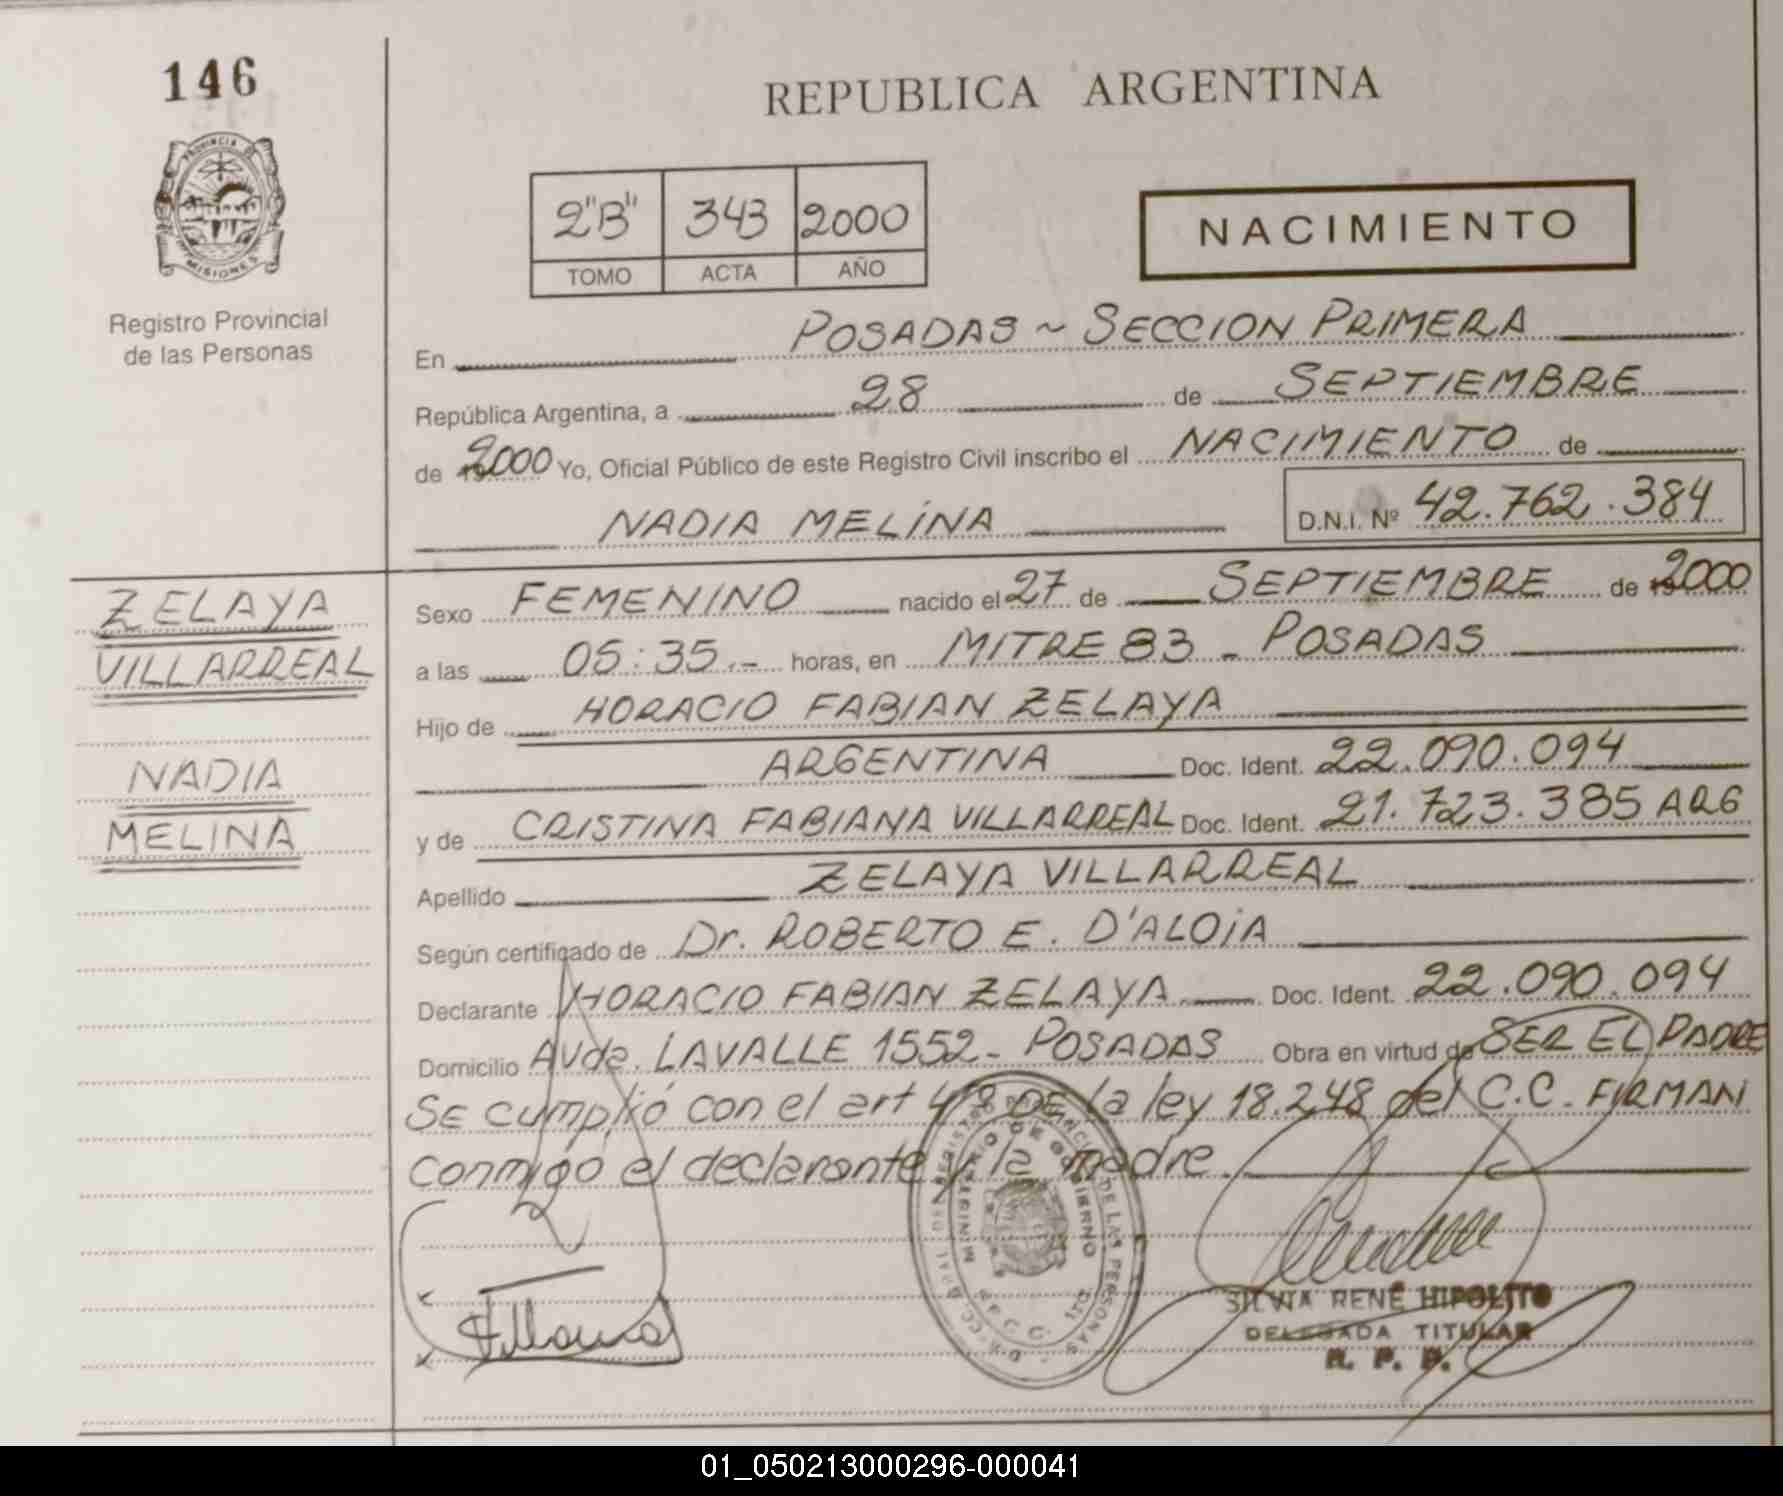 146
REPUBLICA ARGENTINA
PROVINCIA DE
MISIONES
Registro Provincial
de las Personas
2"B" 343 2000
TOMO ACTA AÑO
NACIMIENTO
En POSADAS ~ SECCION PRIMERA
República Argentina, a 28 de SEPTIEMBRE
de 2000 Yo, Oficial Público de este Registro Civil inscribo el NACIMIENTO de
NADIA MELINA D.N.I. Nº 42.762.384
ZELAYA
VILLARREAL
NADIA
MELINA
Sexo FEMENINO nacido el 27 de SEPTIEMBRE de 2000
a las 05:35.- horas, en MITRE 83 - POSADAS
Hijo de HORACIO FABIAN ZELAYA
ARGENTINA Doc. Ident. 22.090.094
y de CRISTINA FABIANA VILLARREAL Doc. Ident. 21.723.385 ARG
Apellido ZELAYA VILLARREAL
Según certificado de Dr. ROBERTO E. D'ALOIA
Declarante HORACIO FABIAN ZELAYA Doc. Ident. 22.090.094
Domicilio AVda. LAVALLE 1552 - POSADAS Obra en virtud de SER EL PADRE
SE cumplió con el art 4º DE la ley 18.248 del C.C. FIRMAN
conmigo el declarante y la madre.
MINISTERIO DE GOBIERNO
SILVIA RENÉ HIPOLITO
DELEGADA TITULAR
R. P. P.
01_050213000296-000041